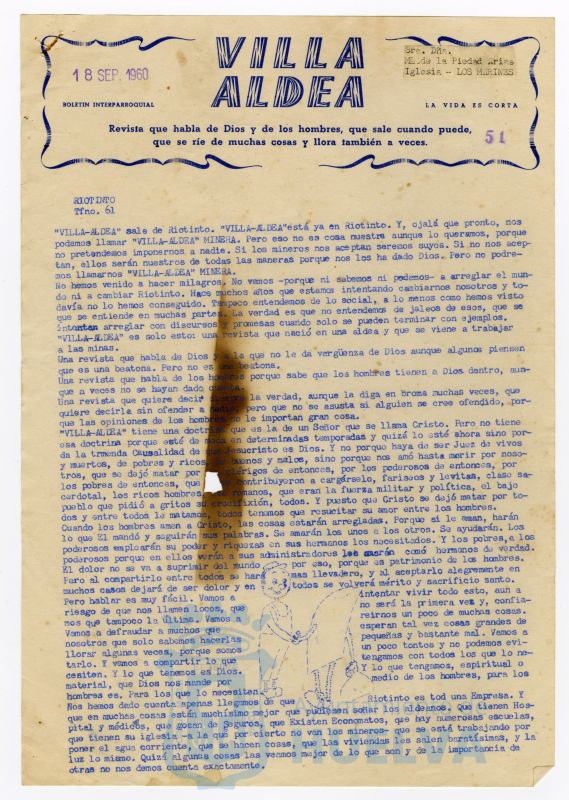 18 SEP. 1960
VILLA
ALDEA
Sra. Dña.
Mª.de la Piedad Arias
Iglesia - LOS MARINES
BOLETIN INTERPARROQUIAL
LA VIDA ES CORTA
Revista que habla de Dios y de los hombres, que sale cuando puede,
que se ríe de muchas cosas y llora también a veces.
51
RIOTINTO
Tfno. 61
"VILLA-ALDEA" sale de Riotinto. "VILLA-ALDEA" está ya en Riotinto. Y, ojalá que pronto, nos
podamos llamar "VILLA-ALDEA" MINERA. Pero eso no es cosa nuestra aunque lo queramos, porque
no pretendemos imponernos a nadie. Si los mineros nos aceptan seremos suyos. Si no nos acep-
tan, ellos serán nuestros de todas las maneras porque nos los ha dado Dios. Pero no podre-
mos llamarnos "VILLA-ALDEA" MINERA.
No hemos venido a hacer milagros. No vamos -porque ni sabemos ni podemos- a arreglar el mun-
do ni a cambiar Riotinto. Hace muchos años que estamos intentando cambiarnos nosotros y to-
davía no lo hemos conseguido. Tampoco entendemos de lo social, a lo menos como hemos visto
que se entiende en muchas partes. La verdad es que no entendemos de jaleos de esos, que se
intentan arreglar con discursos y promesas cuando solo se pueden terminar con ejemplos.
"VILLA-ALDEA" es solo esto: una revista que nació en una aldea y que se viene a trabajar
a las minas.
Una revista que habla de Dios y a la que no le da vergüenza de Dios aunque algunos piensen
que es una beatona. Pero no es beatona.
Una revista que habla de los hombres porque sabe que los hombres tienen a Dios dentro, aun-
que a veces no se hayan dado cuenta.
Una revista que quiere decir la verdad, aunque la diga en broma muchas veces, que
quiere decirla sin ofender a nadie, pero que no se asusta si alguien se cree ofendido, por-
que las opiniones de los hombres no le importan gran cosa.
"VILLA-ALDEA" tiene una doctrina que es la de un Señor que se llama Cristo. Pero no tiene
esa doctrina porque esté de moda en determinadas temporadas y quizá lo esté ahora sino por-
da la trmenda Causalidad de que Jesucristo es Dios. Y no porque haya de ser Juez de vivos
y muertos, de pobres y ricos, de buenos y malos, sino porque nos amó hasta morir por noso-
tros, que se dejó matar por los clérigos de entonces, por los poderosos de entonces, por
los pobres de entonces, que contribuyeron a cargárselo, fariseos y levitas, clase sa-
cerdotal, los ricos hombres romanos, que eran la fuerza militar y política, el bajo
pueblo que pidió a gritos su crucifixión, todos. Y puesto que Cristo se dejó matar por to-
dos y entre todos le matamos, todos tenemos que resucitar su amor entre los hombres.
Cuando los hombres amen a Cristo, las cosas estarán arregladas. Porque si le aman, harán
lo que El mandó y seguirán sus palabras. Se amarán los unos a los otros. Se ayudarán. Los
poderosos emplearán su poder y riquezas en sus hermanos los necesitados. Y los pobres, a los
poderosos porque en ellos verán a sus administradores les amarán como hermanos de verdad.
El dolor no se va a suprimir del mundo por eso, porque es patrimonio de los hombres.
Pero al compartirlo entre todos se hará mas llevadero, y al aceptarlo alegremente en
muchos casos dejará de ser dolor y en todos se volverá mérito y sacrificio santo.
Pero hablar es muy fácil. Vamos a intentar vivir todo esto, aun a
riesgo de que nos llamen locos, que no será la primera vez y, confia-
mos que tampoco la última. Vamos a reirnos un poco de muchas cosas.
Vamos a defraudar a muchos que esperan tal vez cosas grandes de
nosotros que solo sabemos hacerlas pequeñas y bastante mal. Vamos a
llorar algunas veces, porque somos un poco tontos y no podemos evi-
tarlo. Y vamos a compartir lo que tengamos con todos los que lo ne-
cesiten. Y lo que tenemos es Dios. Y lo que tengamos, espiritual o
material, que Dios nos mande por medio de los hombres, para los
hombres es. Para los que lo necesiten.
Nos hemos dado cuenta apenas llegamos de que Riotinto es tod una Empresa. Y
que en muchas cosas están muchísimo mejor que pudiesen soñar los aldeanos. Que tienen Hos-
pital y médidos, que gozan de Seguros, que Existen Economatos, que hay numerosas escuelas,
que tienen su iglesia - a la que por cierto no van los mineros- que se está trabajando por
poner el agua corriente, que se hacen cosas, que las viviendas les salen baratísimas, y la
luz lo mismo. Quizá algunas cosas las veamos mejor de lo que son y de la importancia de
otras no nos demos cuenta exactamente.